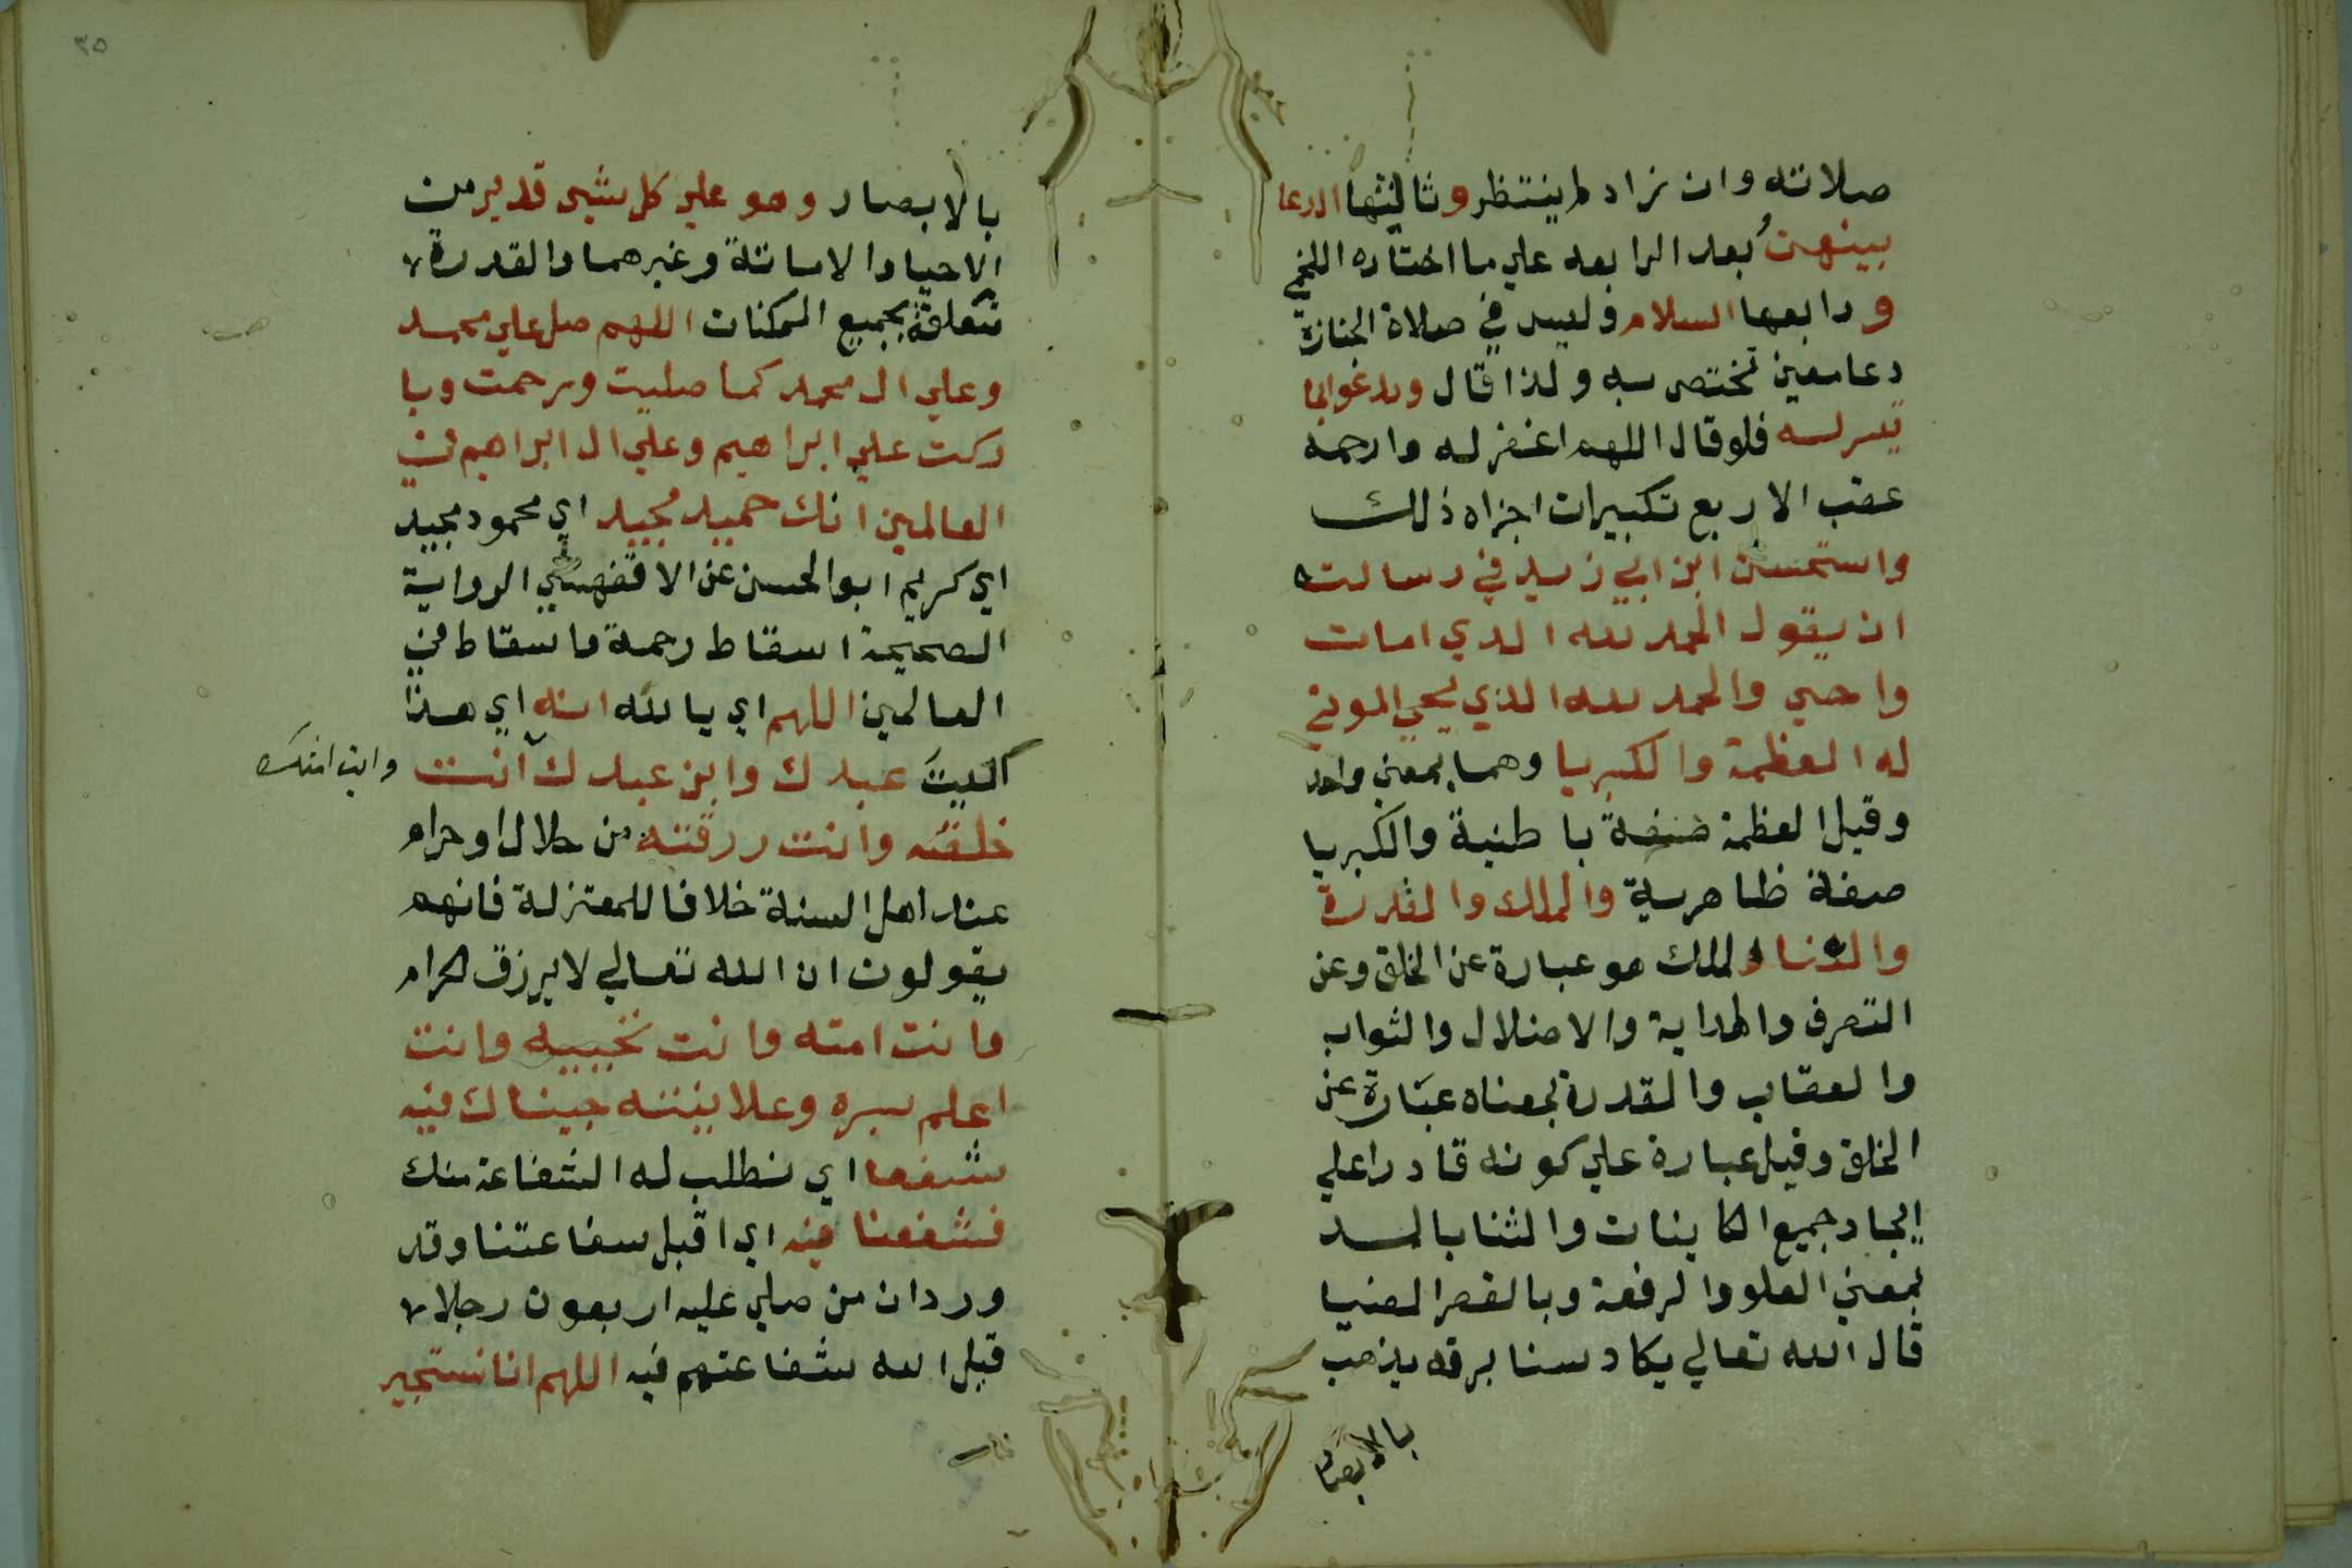 صلاته وان زاد لم ينتظر وثالثها الدعا
بينهن بعد الرابعه علي ما اختاره اللخمي
ورابعها السلام وليس في صلاة الجنازة
دعا معين تختص به ولذا قال ويدعو بما
تيسر له فلو قال اللهم اغفر له وارحمه
عقب الاربع تكبيرات اجزاه ذلك
واستحسن ابن ابي زيد في رسالته
ان يقول الحمد لله الذي امات
واحيي والحمد لله الذي يحيي الموتي
له العظمة والكبريا وهما بمعني واحد
وقيل العظمة صفة باطنية والكبريا
صفة ظاهرية والملك والقدرة
والثنا والملك هو عبارة عن الخلق وعن
التصرف والهداية والاضلال والثواب
والعقاب والقدرة بمعناه عبارة عن
الخلق وقيل عبارة علي كونه قادرا علي
ايجاد جميع الكاينات والثنا بالمد
بمعني العلو والرفعة وبالقصر الضيا
قال الله تعالي يكاد سنا برقه يذهب
بالابصار
٣٥
بالابصار وهو علي كل شيى قدير من
الاحيا والاماتة وغيرهما والقدرة
متعلقة بجميع الممكنات اللهم صل علي محمد
وعلي ال محمد كما صليت ورحمت وبا
ركت علي ابراهيم وعلي ال ابراهيم في
العالمين انك حميد مجيد اي محمود مجيد
اي كريم ابو الحسن عن الاقفهسي الرواية
الصحيحة اسقاط رحمة واسقاط في
العالمين اللهم اي يا الله انه اي هذا
الميت عبدك وابن عبدك انت
وابن امتك
خلقته وانت رزقته من حلال او حرام
عند اهل السنة خلافا للمعتزلة فانهم
يقولون ان الله تعالي لا يرزق الحرام
وانت امته وانت تحييه وانت
اعلم بسره وعلانيته جيناك فيه
شفعا اي نطلب له الشفاعة منك
فشفعنا فيه اي اقبل شفاعتنا وقد
ورد ان من صلي عليه اربعون رجلا
قبل الله شفاعتهم فيه اللهم انا نستجير